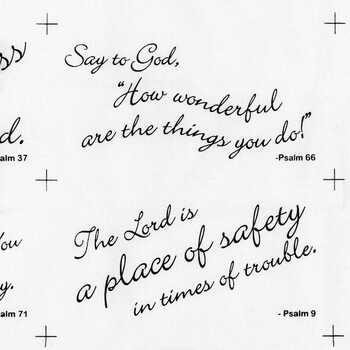 ss
d.
salm 37
Say to God,
"How wonderful
are the things you do!"
-Psalm 66
You
y.
salm 71
The Lord is
a place of safety
in times of trouble.
- Psalm 9